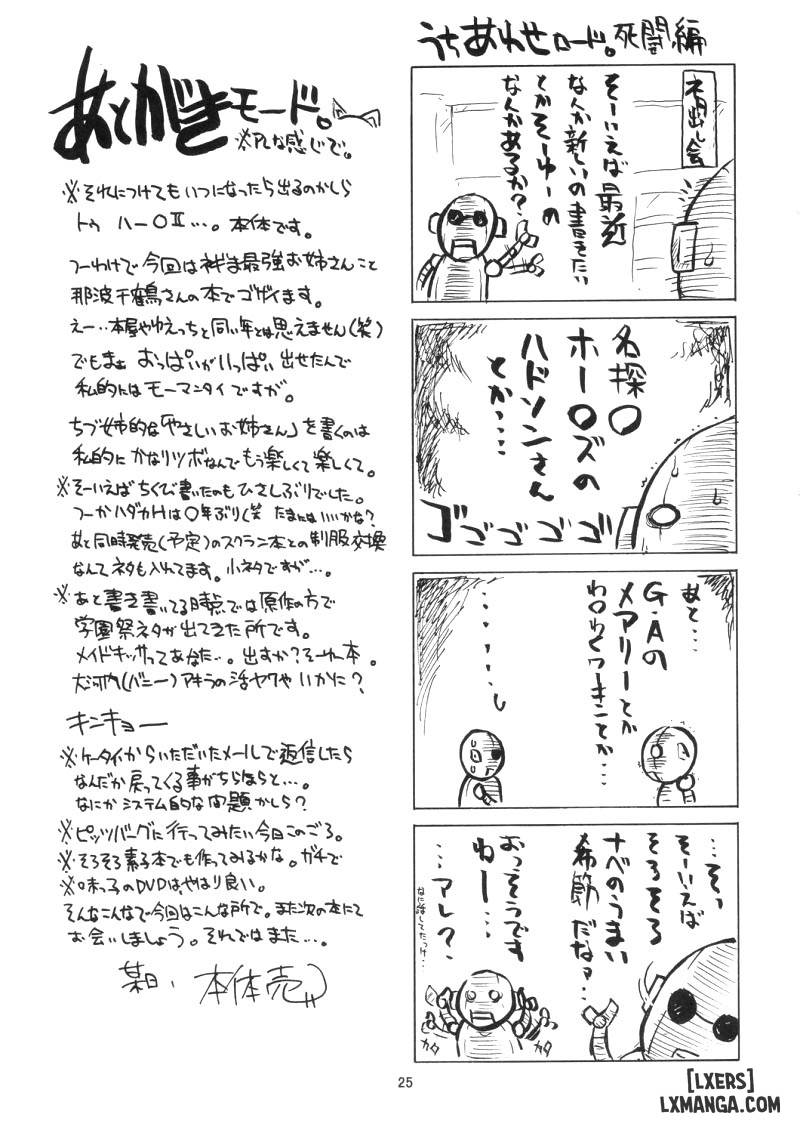 うちあわせロード。死闘編
ネタ出し会
そーいえば最近
なんか新しいの書きたい
とかそーゆーの
なんかあるか？
名探〇
ホー〇ズの
ハドソンさん
とか…
ゴゴゴゴゴ
あと…
G・Aの
メアリーとか
わ〇わくワーキンとか…
…そっ
そーいえば
そろそろ
ナベのうまい
季節だなァ…
おっそうです
ねー…
…アレ？
なに話してたっけ…
カタ
カタ
あとがきモード。
※PLな感じで。
※それにつけてもいつになったら出るのかしら
トゥ ハー〇Ⅱ…。本体です。
つーわけで今回はネギま最強お姉さんこと
那波千鶴さんの本でゴザイます。
えー…本屋やゆえっちと同い年とは思えません(笑)
でもまぁ おっぱいがいっぱい出せたんで
私的にはモーマンタイですが。
ちづ姉的な「やさしいお姉さん」を書くのは
私的にかなりツボなんでもう楽しくて楽しくて。
※そーいえばちくび書いたのもひさしぶりでした。
つーかハダカHは〇年ぶり(笑 たまにはいいかな？
あと同時発売(予定)のスクラン本との制服交換
なんてネタも入れてます。小ネタですが…。
※あと書き書いてる時点では原作の方で
学園祭ネタが出てきた所です。
メイドキッサってあなた…。出すか？そーゆー本。
大河内(バニー)アキラの活ヤクやいかに？
キンキョー
※ケータイからいただいたメールで返信したら
なんだか戻ってくる事がちらほらと…。
なにかシステム的な問題かしら？
※ピッツバーグに行ってみたい今日このごろ。
※そろそろ素子本でも作ってみるかな。ガチで
※味っ子のDVDはやはり良い。
そんなこんなで今回はこんな所で。また次の本にて
お会いしましょう。それではまた…。
某日、本体売
25
[LXERS]
LXMANGA.COM